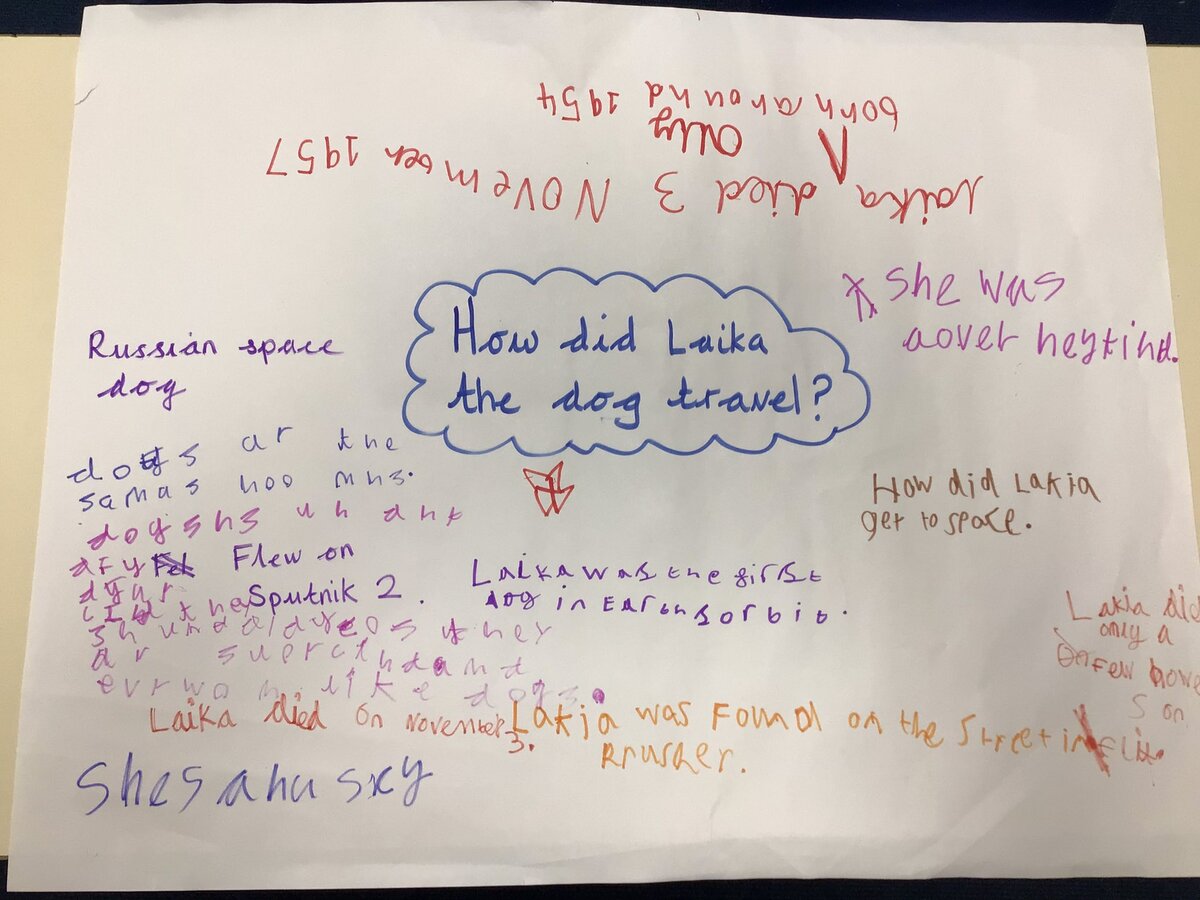 born around 1954
Only
Laika died 3 November 1957
How did Laika
the dog travel?
she was
aover heytind.
Russian space
dog
dogs ar the
samas hoo mns.
dogshs uh dnt
Flew on
Sputnik 2.
Laika was the first
dog in Earthsorbit.
How did Lakia
get to space.
Lakia did
only a
few howe
s on
ar suprcthdand
evrwon like dogs.
Laika died on november
3.
Lakia was Found on the street in
Rrusher.
shesahusky